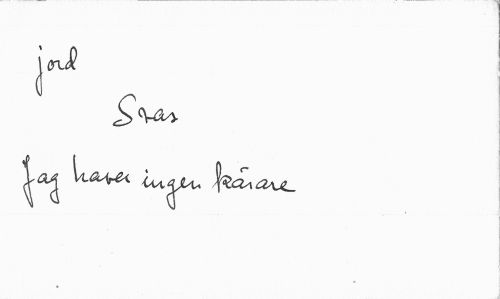 jord
Svar
Jag haver ingen kärare